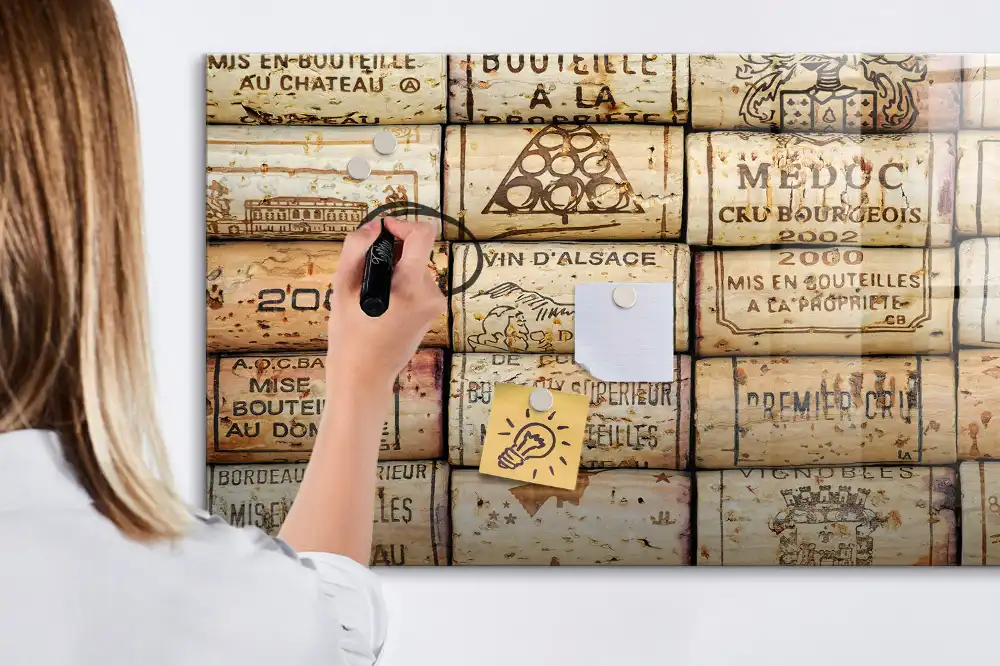 MIS EN-BOUTEILLE
AU CHATEAU Ⓐ
BOUTEILLE
À LA
PROPRIETE
MEDOC
CRU BOURGEOIS
2002
VIN D'ALSACE
200
2000
MIS EN BOUTEILLES
A LA PROPRIETE
CB
A.O.C.BA
MISE
BOUTEI
AU DOM
SUPERIEUR
TEILLES
PREMIER CRU
BORDEAU
RIEUR
MIS E
LLES
AU
VIGNOBLES